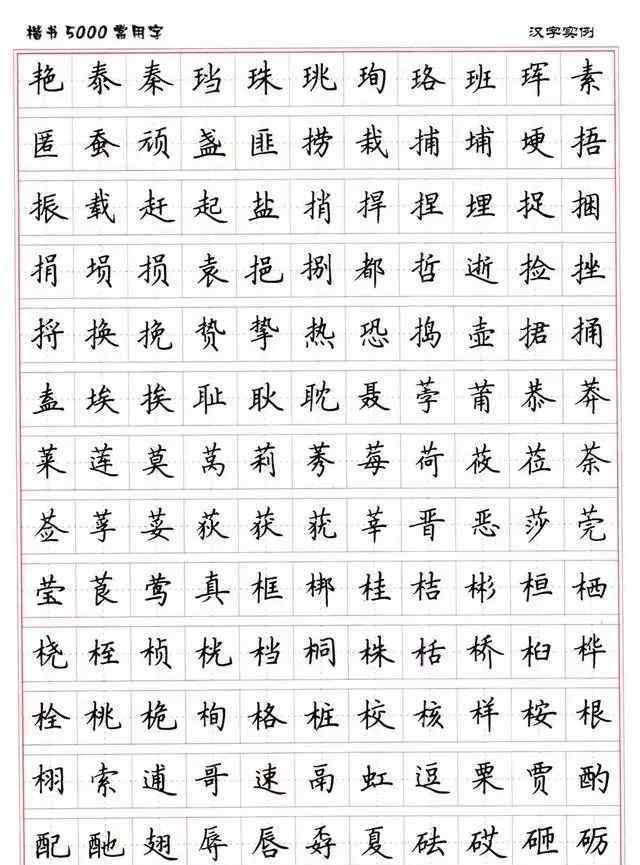 楷书5000常用字 汉字实例
艳泰秦珰珠珧珣珞班珲素
匿蚕顽盏匪捞栽捕埔埂捂
振载赶起盐捎捍捏埋捉捆
捐埙损袁挹捌都哲逝捡挫
捋换挽贽挚热恐捣壶捃捅
盍埃挨耻耿耽聂莩莆恭莽
莱莲莫莴莉莠莓荷莜莅荼
莶莩荽荻获莸莘晋恶莎莞
莹莨莺真框梆桂桔彬桓栖
桡桎桢桄档桐株栝桥桕桦
栓桃桅栒格桩校核样桉根
栩索逋哥速鬲虹逗栗贾酌
配酏翅辱唇孬夏砝砹砸砺